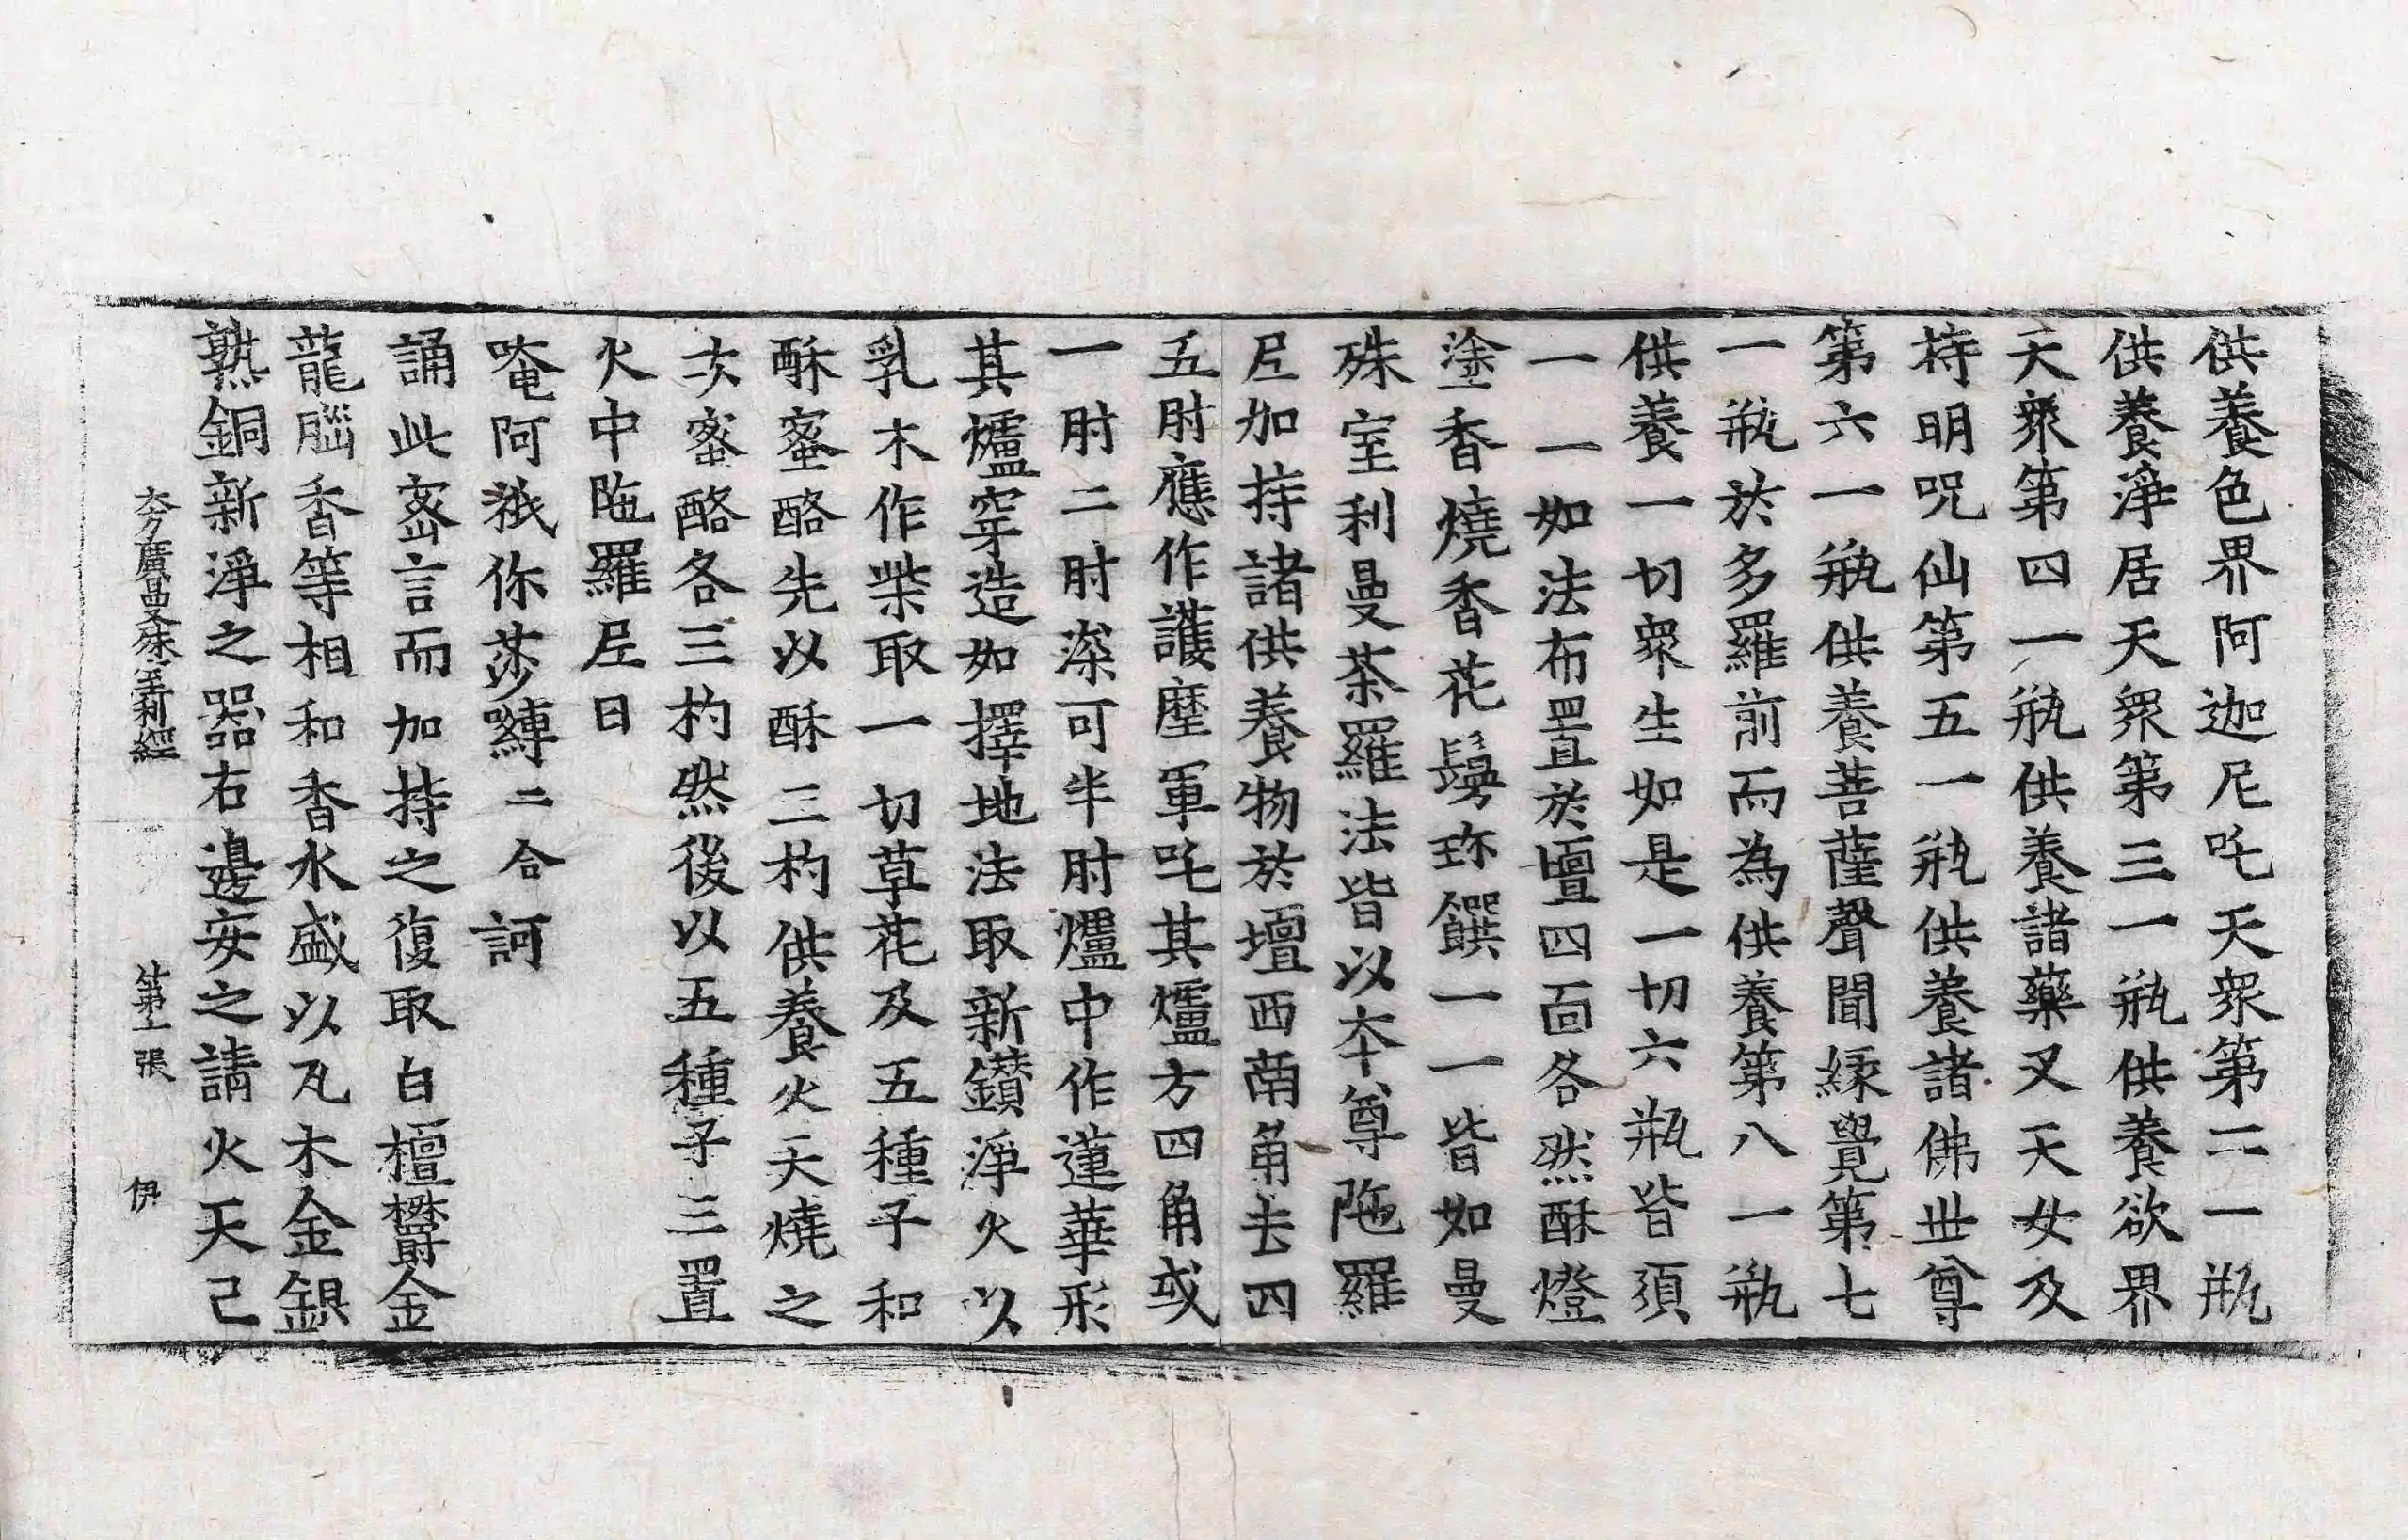 供養色界阿迦尼吒天衆第二一瓶
供養淨居天衆第三一瓶供養欲界
天衆第四一瓶供養諸藥叉天女及
持明呪仙第五一瓶供養諸佛世尊
第六一瓶供養菩薩聲聞緣覺第七
一瓶於多羅前而為供養第八一瓶
供養一切衆生如是一切六瓶皆須
一一如法布置於壇四面各然酥燈
塗香燒香花鬘珎饌一一皆如曼
殊室利曼荼羅法皆以本尊陁羅
尼加持諸供養物於壇西南角去四
五肘應作護麽軍吒其爐方四角或
一肘二肘深可半肘爐中作蓮華形
其爐穿造如擇地法取新鑽淨火以
乳木作柴取一切草花及五種子和
酥蜜酪先以酥三杓供養火天燒之
次蜜酪各三杓然後以五種子三置
火中陁羅尼曰
唵阿祇你莎嚩二合訶
誦此密言而加持之復取白檀欝金
龍腦香等相和香水盛以瓦木金銀
熟銅新淨之器右邊安之請火天已
大方廣曼殊室利經 第十一張 伊